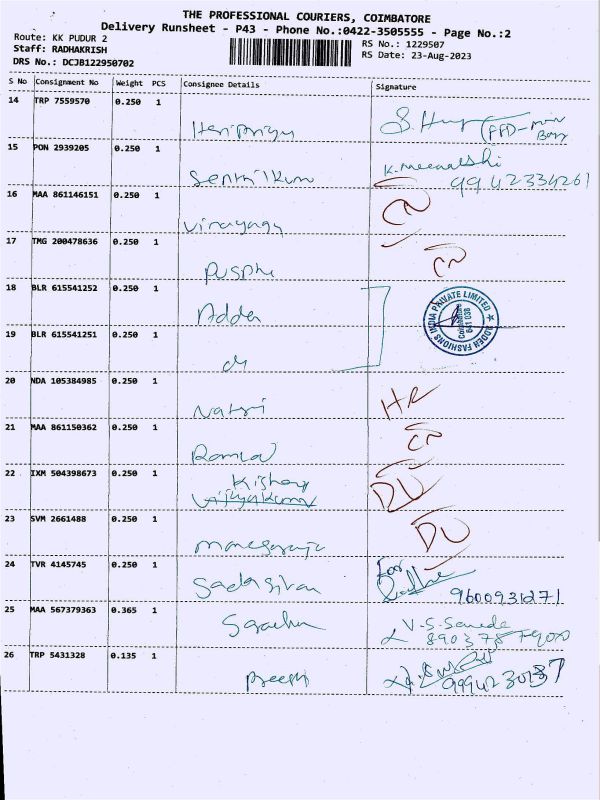 THE PROFESSIONAL COURIERS, COIMBATORE
Delivery Runsheet - P43 - Phone No.:0422-3505555 - Page No.:2
Route: KK PUDUR 2
RS No.: 1229507
Staff: RADHAKRISH
RS Date: 23-Aug-2023
DRS No.: DCJB122950702
S No Consignment No Weight PCS Consignee Details Signature
14 TRP 7559570 0.250 1 Haripriya
15 PON 2939205 0.250 1 Senthilkum K. Meenakshi
9942334261
16 MAA 861146151 0.250 1 Vinayaga CN
17 TMG 200478636 0.250 1 Puspha CN
18 BLR 615541252 0.250 1 Adden
ADDEN FASHIONS INDIA PRIVATE LIMITED
Coimbatore
641 038
19 BLR 615541251 0.250 1
20 NDA 105384985 0.250 1 HR
21 MAA 861150362 0.250 1 CN
22 IXM 504398673 0.250 1 Kishor DU
Vijayakum
23 SVM 2661488 0.250 1 DU
24 TVR 4145745 0.250 1 Sadasivan For
9600931271
25 MAA 567379363 0.365 1 V-S-
26 TRP 5431328 0.135 1 Preethi
9994230137